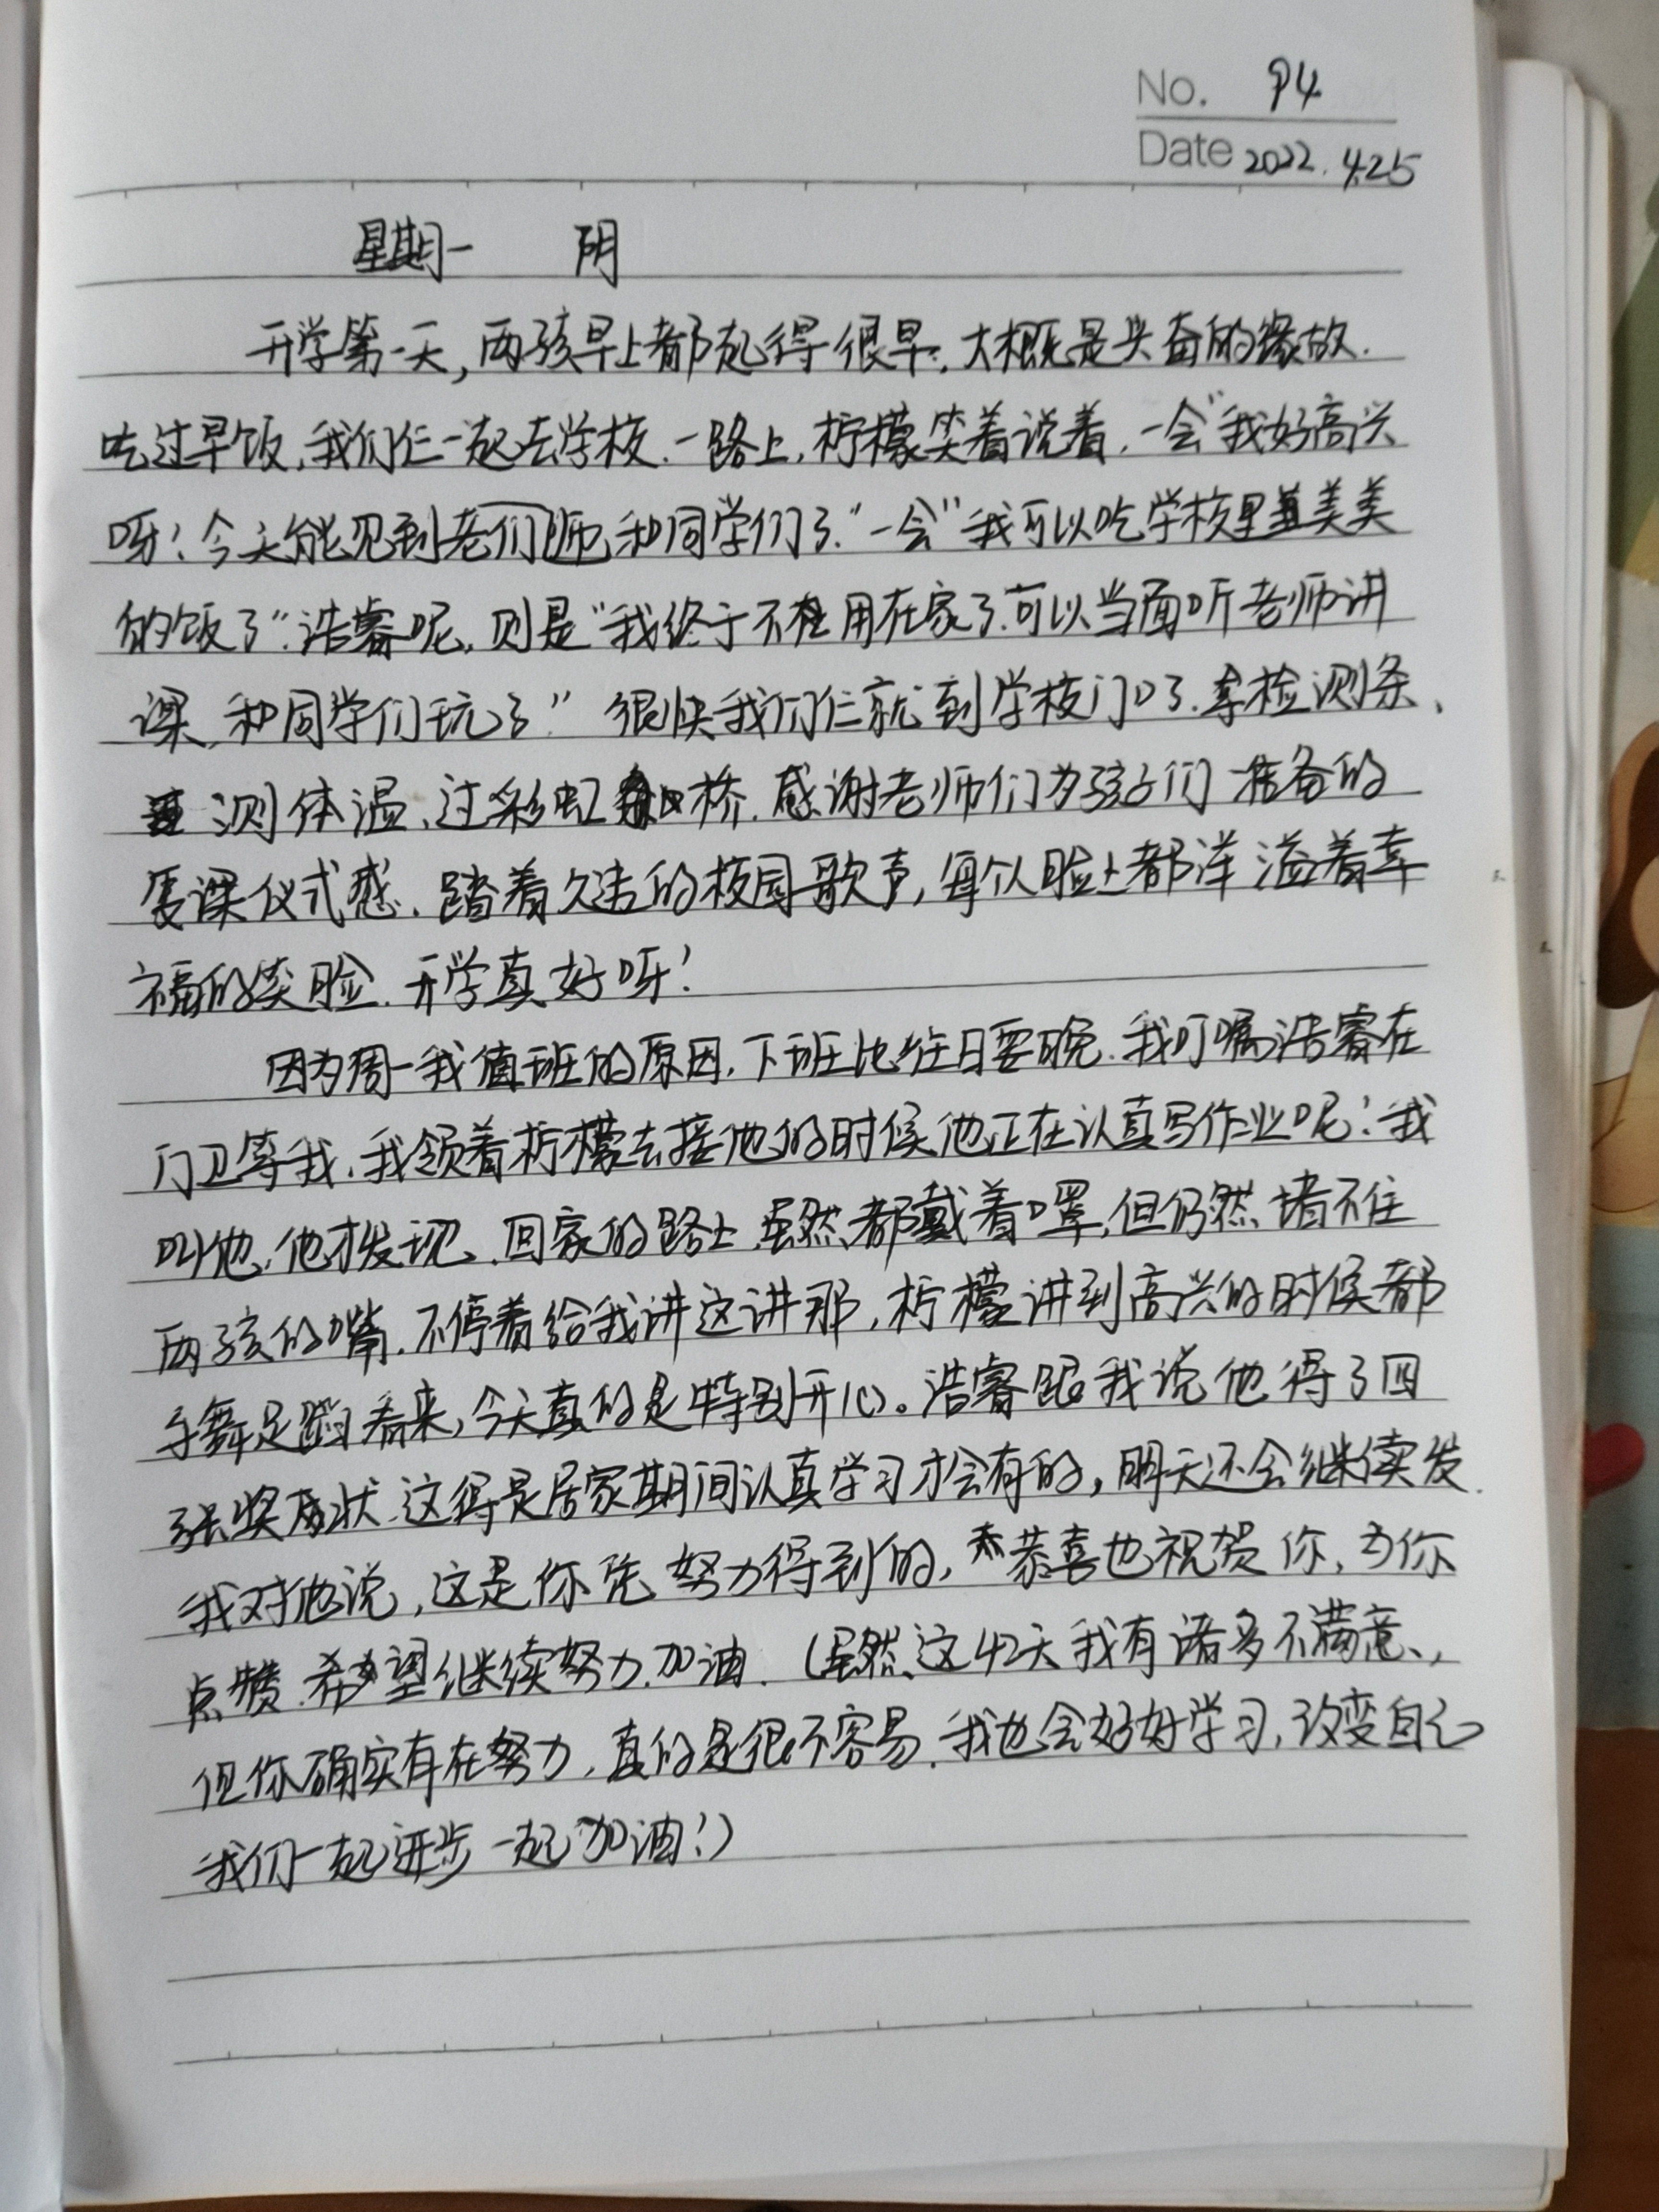 No. 94
Date 2022.4.25
星期一 阴
开学第一天,两孩早上都起得很早,大概是兴奋的缘故.
吃过早饭,我们仨一起去学校.一路上,柠檬笑着说着,一会"我好高兴
呀!今天能见到老师们和同学们了."一会"我可以吃学校里美美
的饭了".浩睿呢,则是"我终于不用在家了.可以当面听老师讲
课,和同学们玩了."很快我们仨就到学校门口了.拿检测条、
测体温、过彩虹桥.感谢老师们为孩子们准备的
复课仪式感.踏着久违的校园歌声,每个人脸上都洋溢着幸
福的笑脸.开学真好呀!
因为周一我值班的原因,下班比往日要晚.我叮嘱浩睿在
门卫等我.我领着柠檬去接他的时候他正在认真写作业呢!我
叫他,他才发现.回家的路上虽然都戴着口罩,但仍然堵不住
两孩的嘴.不停着给我讲这讲那,柠檬讲到高兴的时候都
手舞足蹈着来,今天真的是特别开心。浩睿跟我说他得了四
张奖状.这得是居家期间认真学习才会有的,明天还会继续发.
我对他说,这是你凭努力得到的,恭喜也祝贺你,为你
点赞.希望继续努力.加油.(虽然这42天我有诸多不满意,
但你确实有在努力,真的是很不容易.我也会好好学习,改变自己
我们一起进步一起加油!)